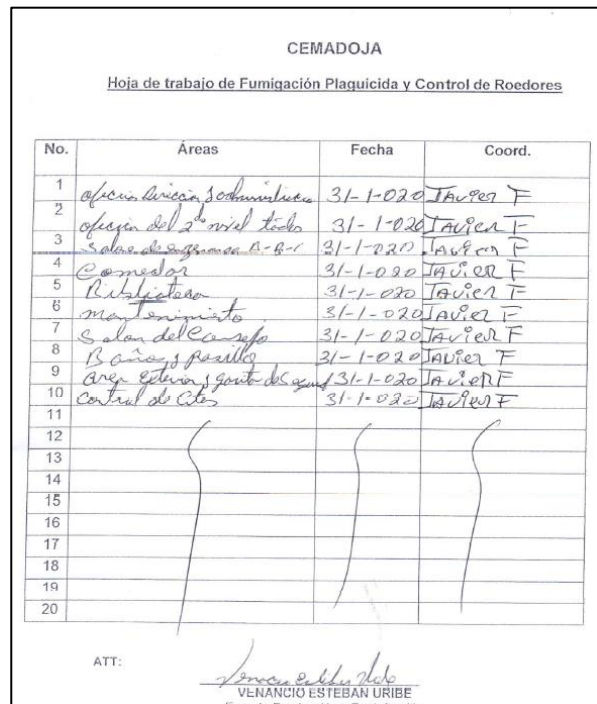 CEMADOJA
Hoja de trabajo de Fumigación Plaguicida y Control de Roedores
No. Áreas Fecha Coord.
1 oficina Dirección y administrativa 31-1-020 Javier F
2 oficina del 2do nivel todos 31-1-020 Javier F
3 Salon de A-B-C 31-1-020 Javier F
4 Comedor 31-1-020 Javier F
5 Biblioteca 31-1-020 Javier F
6 mantenimiento 31-1-020 Javier F
7 Salon del Consejo 31-1-020 Javier F
8 Baños y Pasillo 31-1-020 Javier F
9 area Exterior y garita de 31-1-020 Javier F
10 Central de Citas 31-1-020 Javier F
11
12
13
14
15
16
17
18
19
20
ATT:
VENANCIO ESTEBAN URIBE